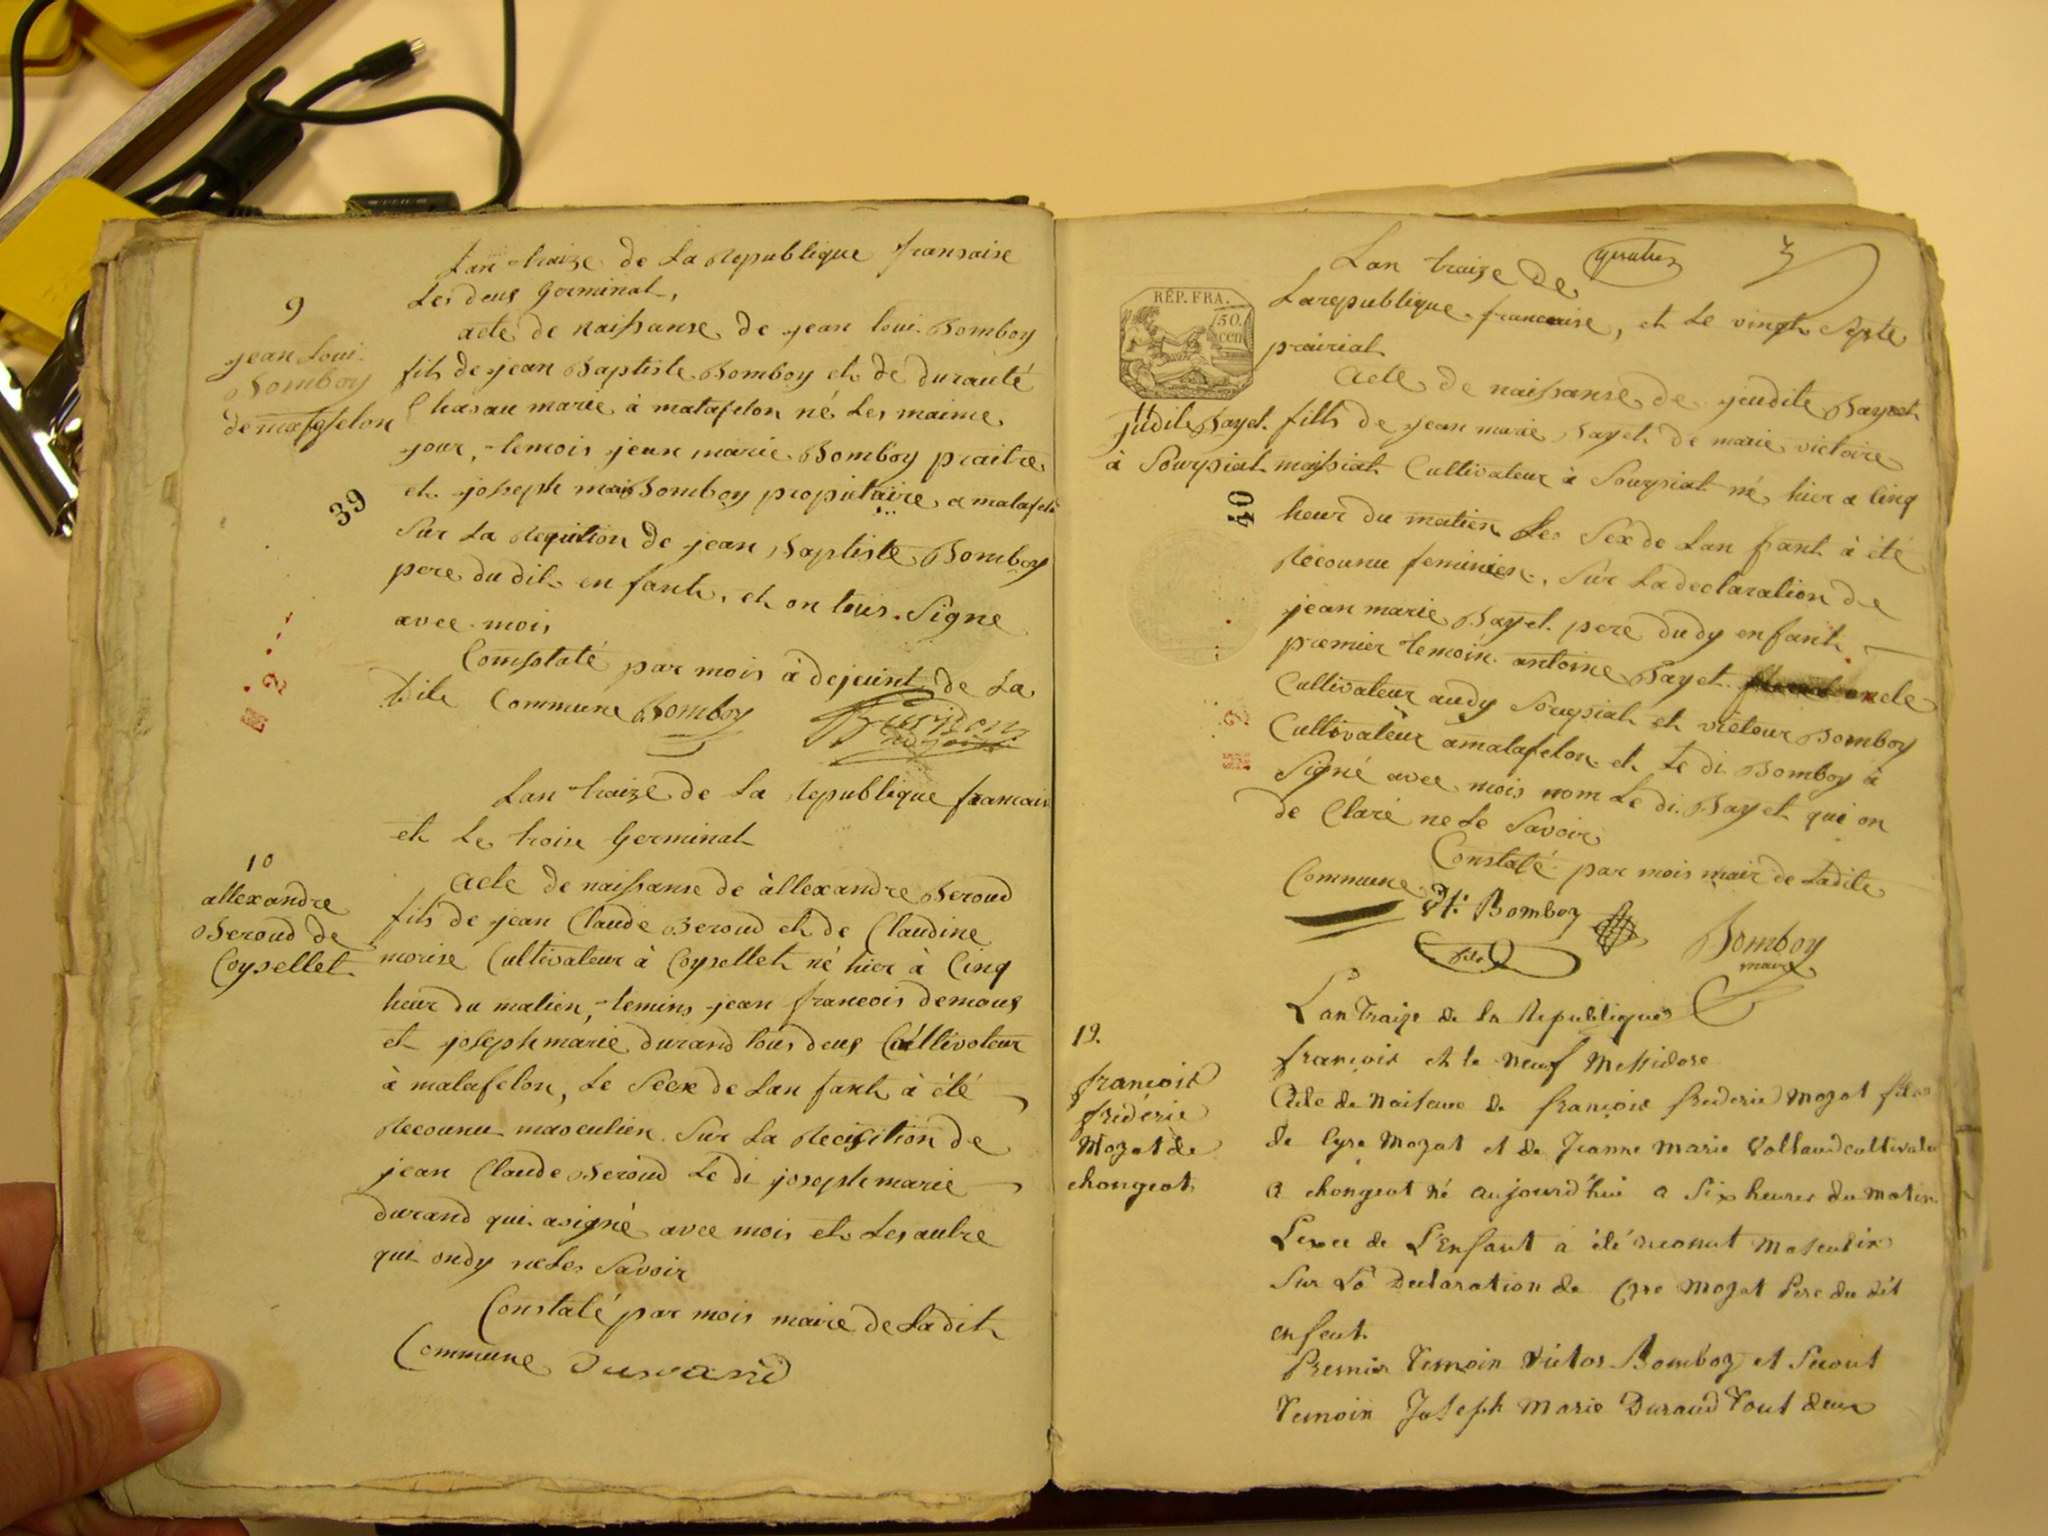 9
jean Loui
Bomboy
de matafelon
39
Lan traize de La Republique fransaise
Les deus Germinal,
acte de naissanse de jean loui Bomboy
fils de jean Baptiste Bomboy et de durauté
Chasau marie à matafelon né Les maime
jour, temois jean marie Bomboy praitre
et joseph Bomboy propiétaire a matafelo
Sur La Requition de jean Baptiste Bomboy
pere du dit en fant, et on tous Signe
avec mois
Constaté par mois à dejoint de La
dite Commune Bomboy
Lan traize de La republique francais
et Le troise Germinal
10
allexandre
Beroud de
Coysellet
acte de naissanse de àllexandre Beroud
fils de jean Claude Beroud et de Claudine
morise Cultivateur à Coysellet né hier à Cinq
heur du matien, temins jean francois demous
et joseph marie durand tous deus Cultivateur
à matafelon, Le Séex de Lan fant à été
Recounu masculien. Sur La Recisition de
jean Claude Beroud Le di joseph marie
durand qui a signé avec mois et Les autre
qui ondy ne Les Savoir
Constaté par mois maire de Ladit
Commune Durand
quatre
RÉP. FRA.
50.
cen
Lan traize de
La republique francaise, et Le vingt Septe
prairial
Judite Bayet
à Sourpiat
40
Acte de naissanse de judite Bayet
fills de jean marie Bayet de marie victoire
maissiat Cultivateur à Sourpiat né hier a Cinq
heur du matien Les Séx de Lan fant à été
Recounu feminien, Sur La declaration de
jean marie Bayet pere dudy enfant
premier temoin antoine Bayet oncle
Cultivateur audy Sourpiat et victour Bomboy
Cultivateur amatafelon et Le di Bomboy à
Signé avec mois nom Le di Bayet qui on
de Claré ne Le Savoir
Constaté par mois mair de Ladite
Commune
Vt. Bomboy
fils
Bomboy
maire
19.
françois
fréderic
Mozat de
chongeat
L'an Traize de la Republique
françois et le neuf Messidore
Acte de Naisence de françois frederic Mozat fils
de Cyre Mozat et de Jeanne Marie Vallaud cultivateu
a chongeat né aujourd'hui a Six heures du Matin
Lexce de L'Enfant à été reconut Masculin
Sur La Declaration de Cyre Mozat Pere du dit
enfent
Premier Temoin Victor Bomboy et Secont
Temoin Joseph Marie Durand Tout deux